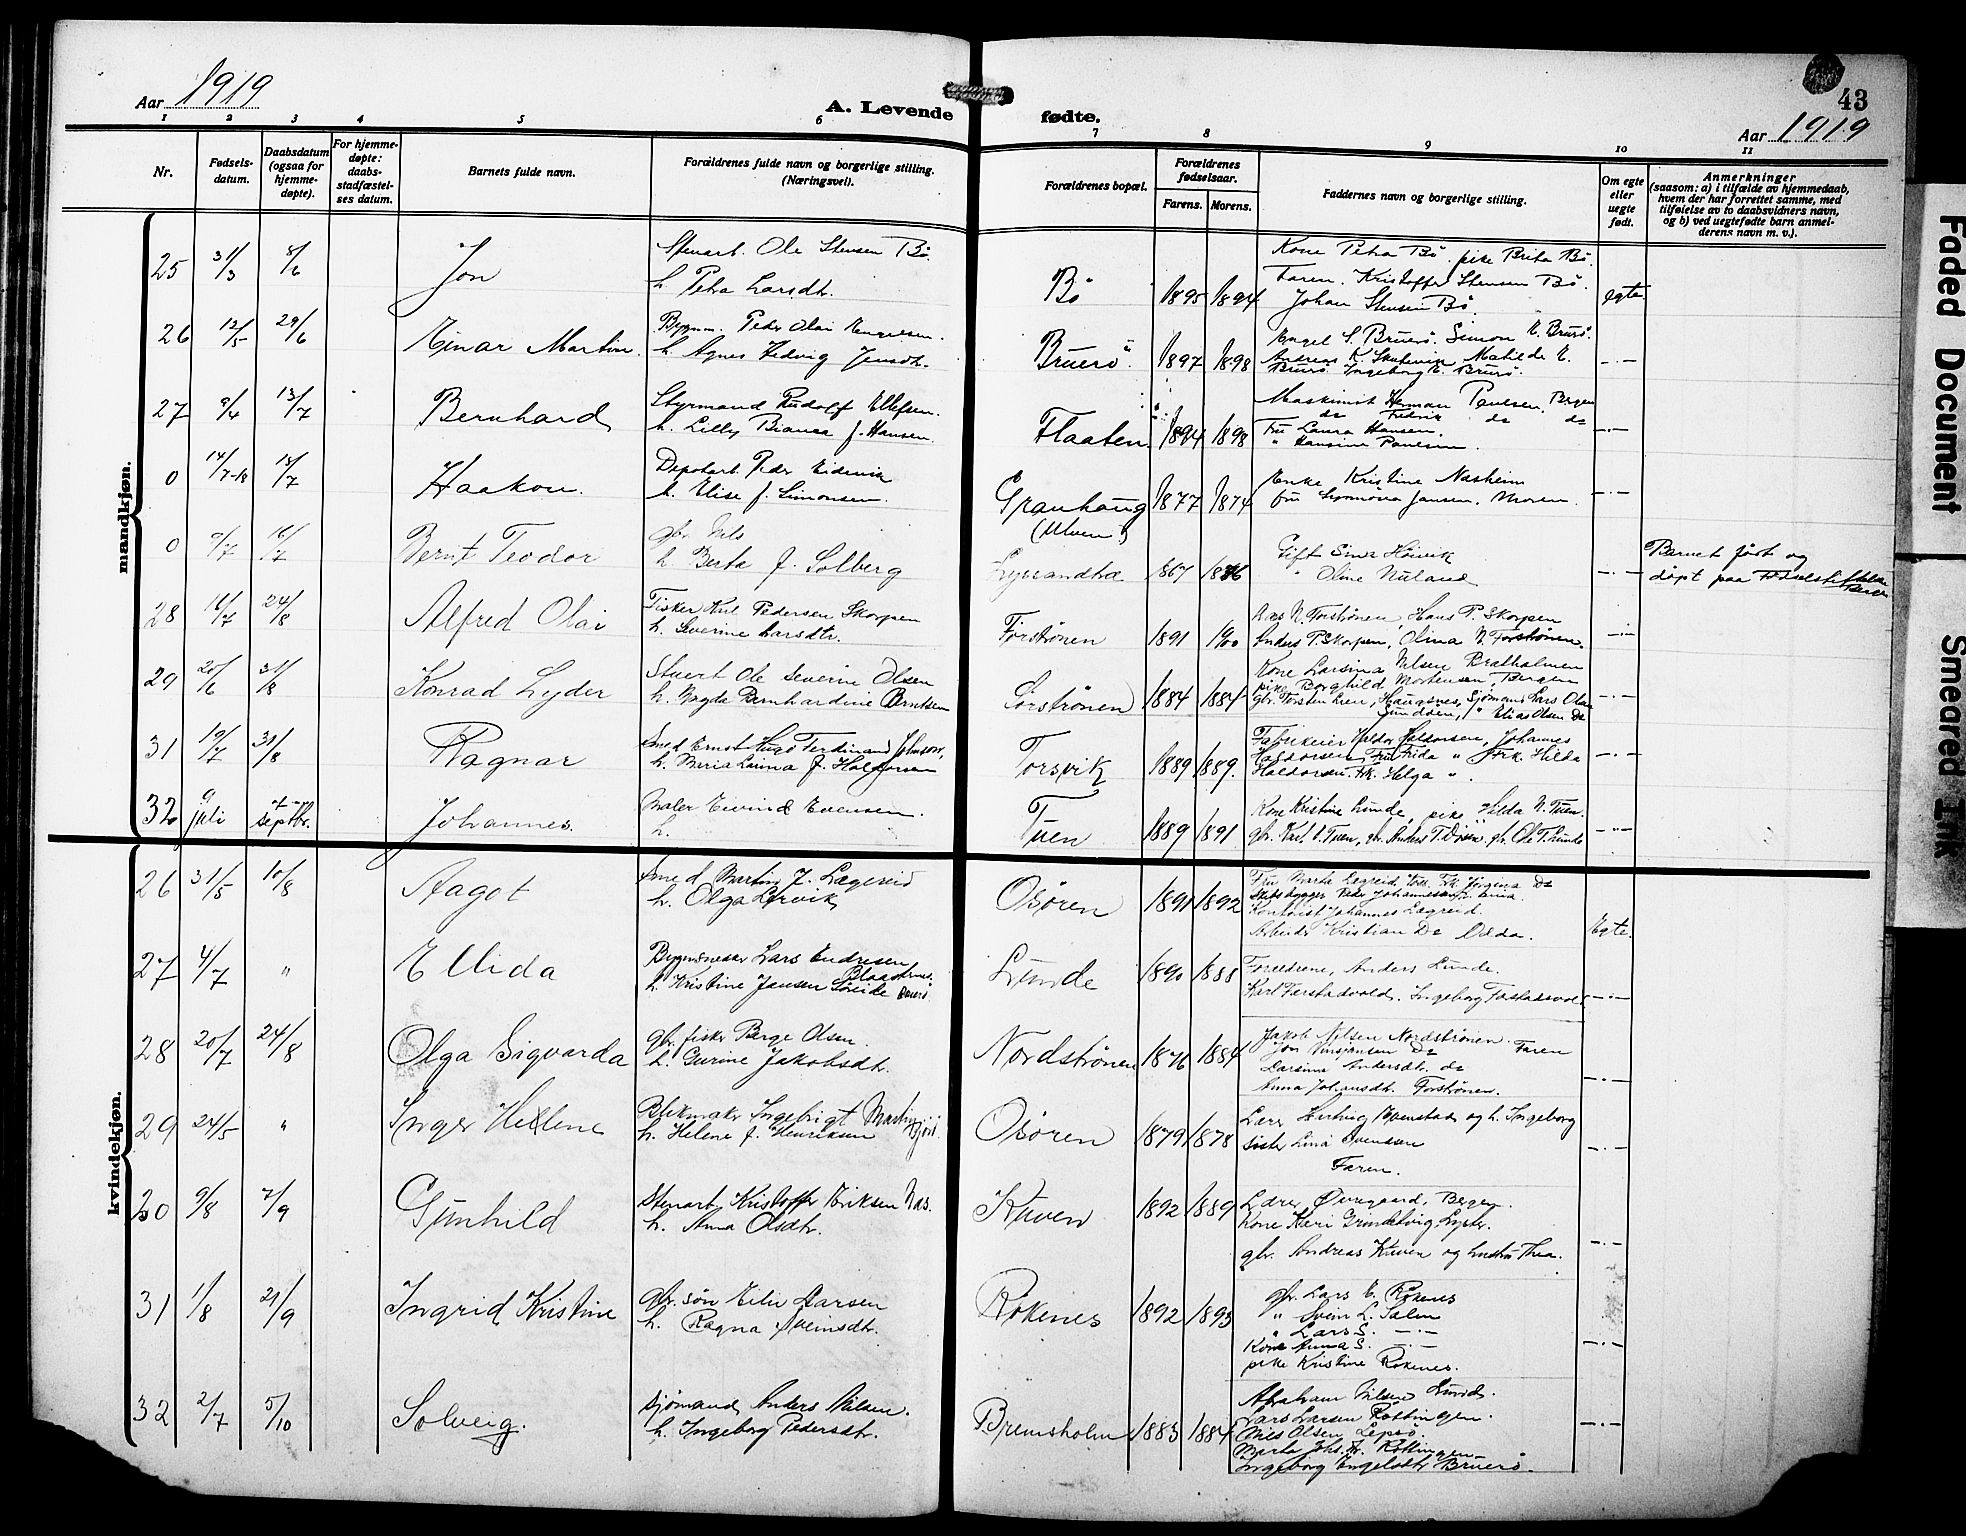 Aar 1919
A. Levende
fødte.
43
Aar 1919
1 2 3 4 5 6 7 8 9 10 11
Nr.
Fødsels-
datum.
Daabsdatum
(ogsaa for
hjemme-
døpte).
For hjemme-
døpte:
daabs-
stadfæstel-
ses datum.
Barnets fulde navn.
Forældrenes fulde navn og borgerlige stilling.
(Næringsvei).
Forældrenes bopæl.
Forældrenes
fødselsaar.
Farens. Morens.
Faddernes navn og borgerlige stilling.
Om egte
eller
uegte
født.
Anmerkninger
(saasom: a) i tilfælde av hjemmedaab,
hvem der har forrettet samme, med
tilføielse av to daabsvidners navn,
og b) ved uegtefødte barn anmel-
derens navn m. v.).
mandkjøn.
25 31/3 8/6 Jon
Stenarb. Ole Stensen Bø.
h. Petra Larsdtr.
Bø 1895 1894
Kone Petra Bø. pike Brita Bø.
Faren. Kristoffer Stensen Bø.
Johan Stensen Bø.
egte.
26 12/5 29/6 Einar Martin.
Bygnm. Peder Olai Engelsen.
h. Agnes Hedvig Jensdtr.
Bruerø. 1897 1898
Engel S. Bruerø. Simon E. Bruerø.
Andreas K. Skutevik, Matilde E.
Bruerø. Ingeborg E. Bruerø.
-·-
27 9/4 13/7 Bernhard
Styrmand Rudolf Ellefsen.
h. Lilly Bianca f. Hansen.
Flaaten. 1894 1898
Maskinist Herman Paulsen, Bergen
do Fredrik do do
Fru Laura Hansen.
" Hansine Paulsen.
-·-
0 14/7-18 15/7 Haakon.
Depotarb. Peder Eidsvik
h. Elise f. Simonsen.
Granhaug
(Ulven)
1877 1874
Enke Kristine Nasheim
fru Jansen. Moren.
-·-
0 9/7 16/7 Bernt Teodor
gbr. Nils
h. Berta f. Solberg
Lyssandtræ 1867 1876
Gift Sina Høivik
" Oline Nuland
-·-
Barnet født og
døpt paa Fødselstiftelsen
Bergen
28 16/7 24/8 Alfred Olai
Fisker Karl Pedersen Skorpen
h. Severine Larsdtr.
Forstrønen 1891 1900
Aas N. Forstrønen, Hans P. Skorpen
Anders P. Skorpen, Olina N. Forstrønen.
-·-
29 20/6 31/8 Konrad Lyder
Stuert Ole Severin Olsen
h. Magda Bernhardine Berntsen
Sørstrønen 1884 1884
Kone Larsina Nilsen Bratholmen
pike Borghild Mortensen, Bergen
gbr. Torsten Lien, Haugsnes, Sjømand Lars Olsen
Sundøen, " Elias Olsen Do
-·-
31 19/7 31/8 Ragnar
Smed Ernst Hugo Ferdinand Johnson,
h. Maria Larina f. Haldorsen
Torsvik 1889 1889.
Fabrikeier Haldor Haldorsen, Johannes
Haldorsen, Fru Frida " Frk. Hilda
Haldorsen. Frk. Helga ".
-·-
32 9 juli 7 septbr. Johannes.
Maler Eivind Evensen.
h.
Tuen 1889 1891
Kone Kristine Lunde, pike Hilda N. Tuen.
gbr. Karl N. Tuen, gbr. Anders T. Døsen. gbr. Ole T. Lunde
-·-
kvindekjøn.
26 31/5 10/8 Aagot
Smed Martin J. Lægreid
h. Olga Lervik
Osøren 1891 1892
Fru Marta Lægreid, Frk Jørgina Do
Skibsbygger Peder Johannesen
Kontorist Johannes Lægreid.
Arbeider Kristian Do Odda.
Egte.
27 4/7 " Ellida
Bygmester Lars Endresen
h. Kristine Jansen Søreide
Lunde 1890 1888
Forældrene, Anders Lunde.
Karl Ferstadvold. Ingeborg Ferstadvold
-·-
28 20/7 24/8 Olga Sigvarda
gbr. fisker Berge Olsen.
h. Gurine Jakobsdtr.
Nordstrønen 1876 1884
Jakob Nilsen Nordstrønen. Faren
Jon Do
Larsina Andersdtr. do
Anna Johansdtr. Forstrønen.
-·-
29 24/5 " Inger Helene
Blikmaker Ingebrigt
h. Helene f. Henriksen
Osøren 1879 1878
Lærer Hartvig Evenstad og h. Ingeborg
Søster Lina Svensen
Faren.
-·-
30 9/8 7/9 Gunhild
Stenarb. Kristoffer Eriksen Næs.
h. Anna Olsdtr.
Kuven 1892 1889
Lærer Øvregaard, Bergen.
Kone Kari Grindevig Lyster.
gbr. Andreas Kuven og hustru Thea.
-·-
31 1/8 21/9 Ingrid Kristine
gbr. søn Eiliv Larsen
h. Ragna Sveinsdtr.
Røkenes 1892 1893
gbr. Lars E. Røkenes
" Svein L. Salen
" Lars S. -·-
Kone Anna S. -·-
pike Kristine Røkenes.
-·-
32 2/7 5/10 Solveig.
sjømand Anders Nilsen.
h. Ingeborg Pedersdtr.
Bremsholm 1883 1884
Abraham Nilsen Lunde.
Lars Larsen Røttingen.
Nils Olsen Lepsø.
Marta Johs. dtr. Røttingen
Ingeborg Engelsdtr. Bruerø.
-·-
Faded Document
Smeared Ink